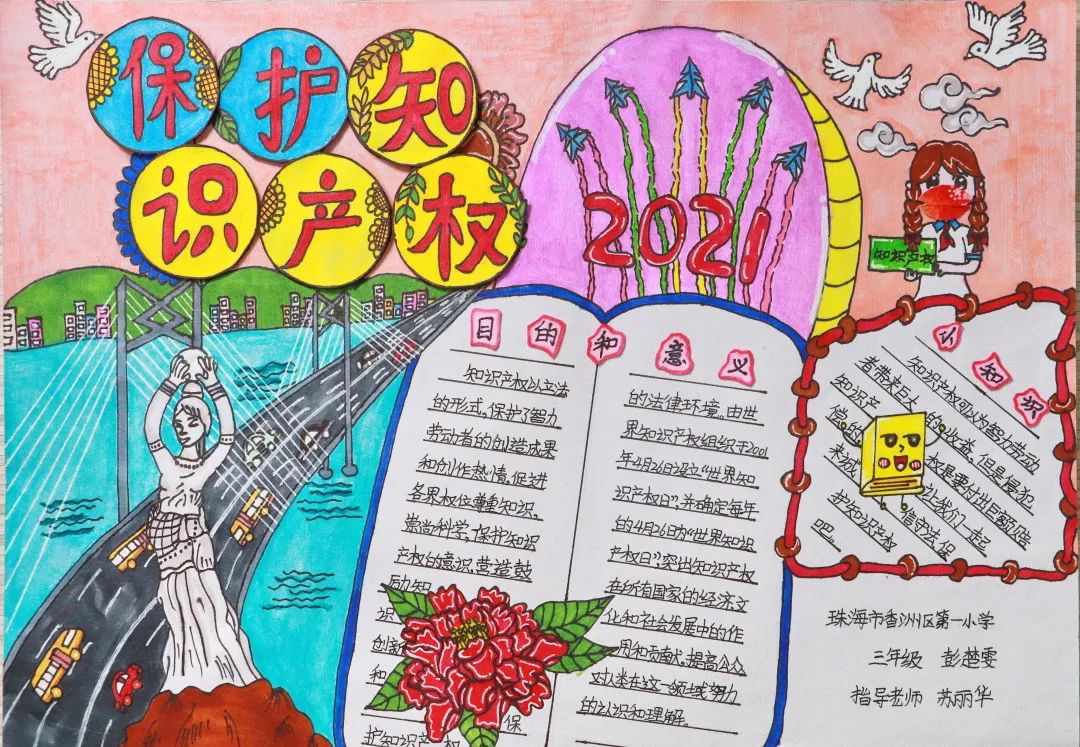 保护知
识产权
2021
知识产权
目的和意义
知识产权以立法
的形式,保护了智力
劳动者的创造成果
和创作热情,促进
各界权位尊重知识,
崇尚科学,保护知识
产权的意识,营造鼓
励知
识
创新
和
保
护知识产权
的法律环境。由世
界知识产权组织于2001
年4月26日设立“世界知
识产权日”,并确定每年
的4月26日为“世界知识
产权日”,突出知识产权
在所有国家的经济文
化和社会发展中的作
用和贡献,提高公众
对人类在这一领域努力
的认识和理解。
认知识
知识产权可以为智力劳动
者带来巨大的收益,但是侵犯
知识产权是要付出巨额赔
偿的
让我们一起
来
信守法,保
护知识产权
吧
珠海市香洲区第一小学
三年级 彭楚雯
指导老师 苏丽华